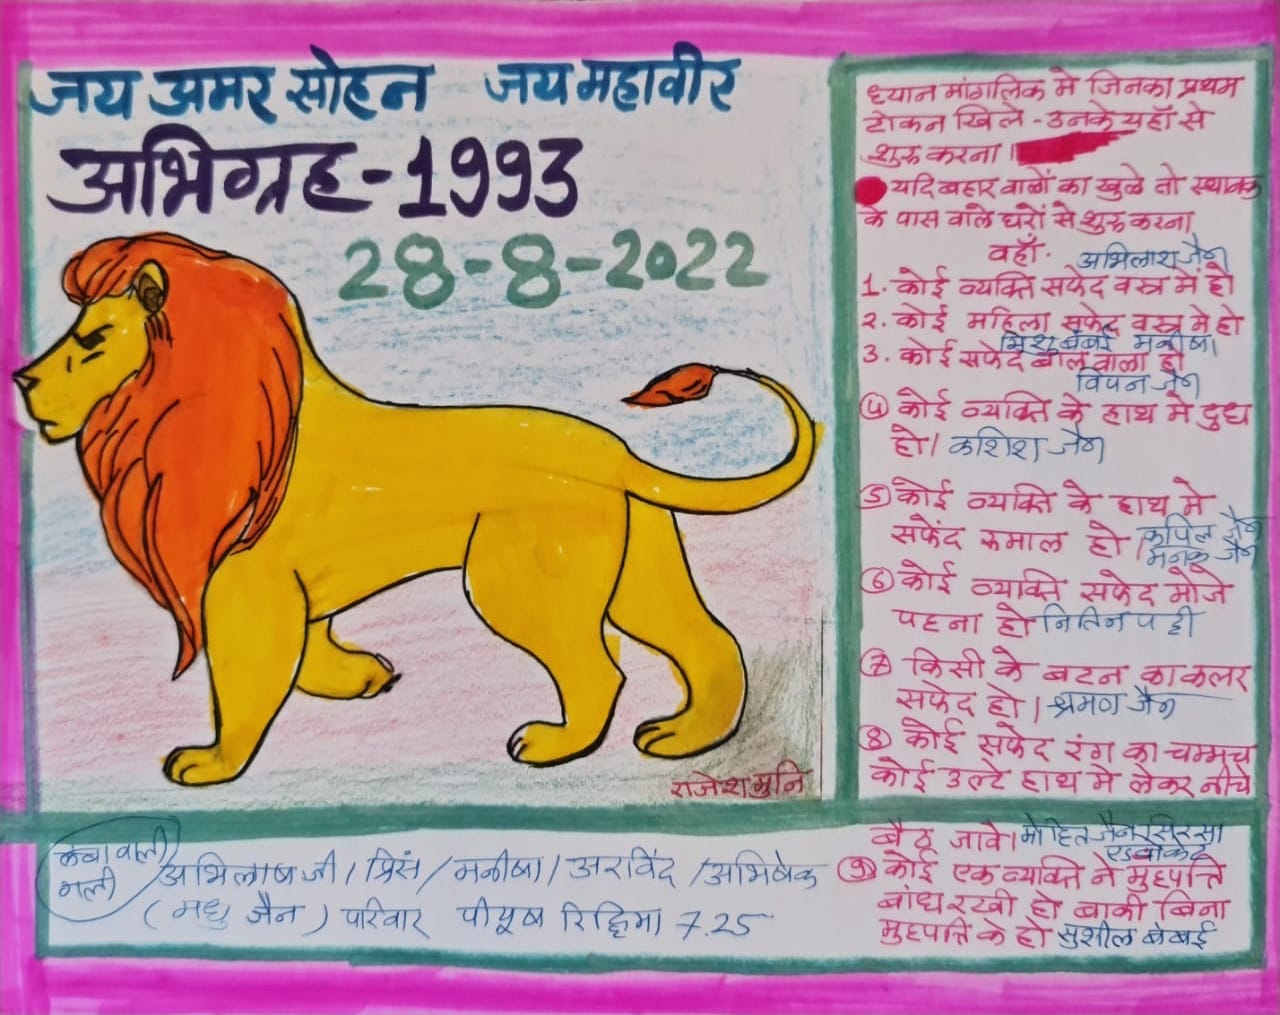 जय अमर सोहन जय महावीर
अभिग्रह-1993
28-8-2022
राजेश मुनि
ध्यान मांगलिक मे जिनका प्रथम
टोकन खिले - उनके यहाँ से
शुरु करना।
यदि बहार वालों का खुले तो स्थानक
के पास वाले घरों से शुरु करना
वहाँ. अभिलाश जैन
1. कोई व्यक्ति सफेद वस्त्र में हो
२. कोई महिला सफेद वस्त्र मे हो
बंबई मनीषा
3. कोई सफेद बाल वाला हो
विपन जैन
④ कोई व्यक्ति के हाथ मे दुध
हो। कशिश जैन
⑤ कोई व्यक्ति के हाथ मे
सफेंद रुमाल हो। कपिल जैन
जैन
⑥ कोई व्यक्ति सफेद मोजे
पहना हो नितिन
⑦ किसी के बटन का कलर
सफेद हो। श्रमण जैन
⑧ कोई सफेद रंग का चम्मच
कोई उल्टे हाथ मे लेकर नीचे
बैठ जावे। मोहित जैन सिरसा
एडवोकेट
⑨ कोई एक व्यक्ति ने मुहपत्ति
बांध रखी हो बाकी बिना
मुहपत्ति के हो सुशील बंबई
वाली
गली
अभिलाष जी / प्रिंस / मनीषा / अरविंद / अभिषेक
(मधु जैन) परिवार पीयूष रिद्धिमा 7.25